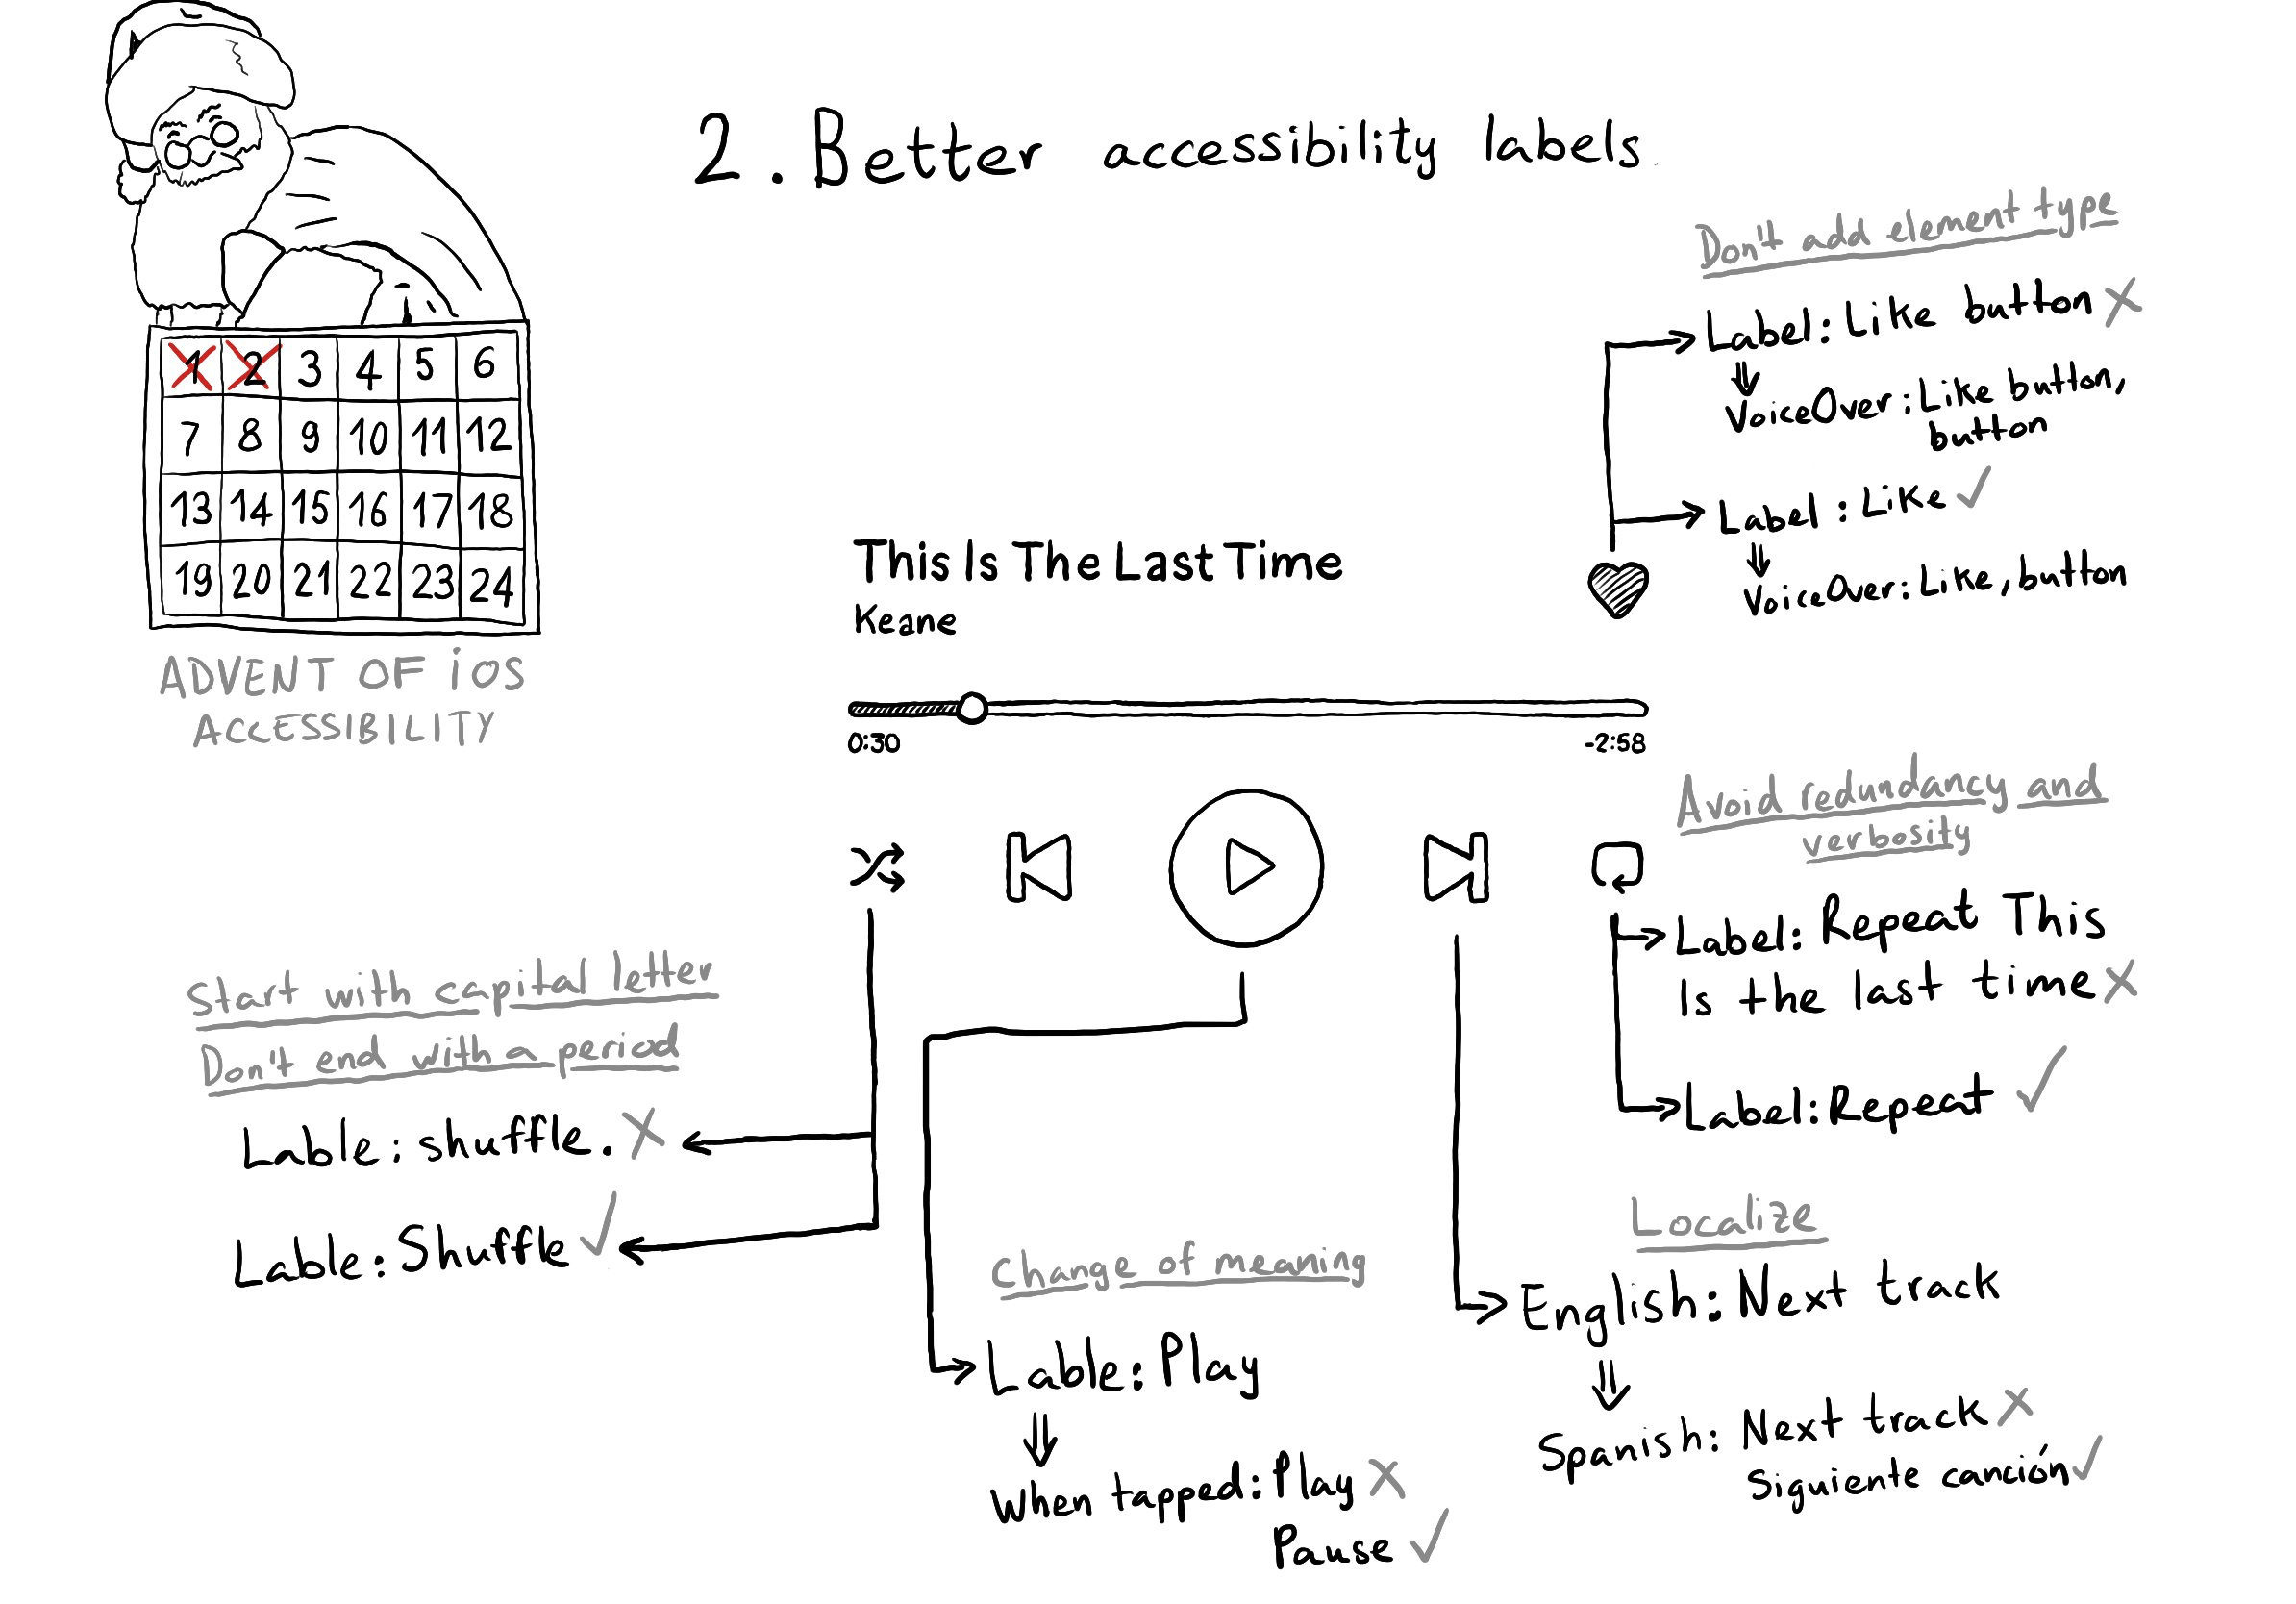 2. Better accessibility labels
1 2 3 4 5 6
7 8 9 10 11 12
13 14 15 16 17 18
19 20 21 22 23 24
ADVENT OF iOS
ACCESSIBILITY
Don't add element type
Label: Like button
VoiceOver: Like button,
button
Label: Like
VoiceOver: Like, button
This Is The Last Time
Keane
0:30
-2:58
Avoid redundancy and
verbosity
Label: Repeat This
Is the last time
Label: Repeat
Start with capital letter
Don't end with a period
Lable: shuffle.
Lable: Shuffle
Change of meaning
Lable: Play
When tapped: Play
Pause
Localize
English: Next track
Spanish: Next track
Siguiente canción